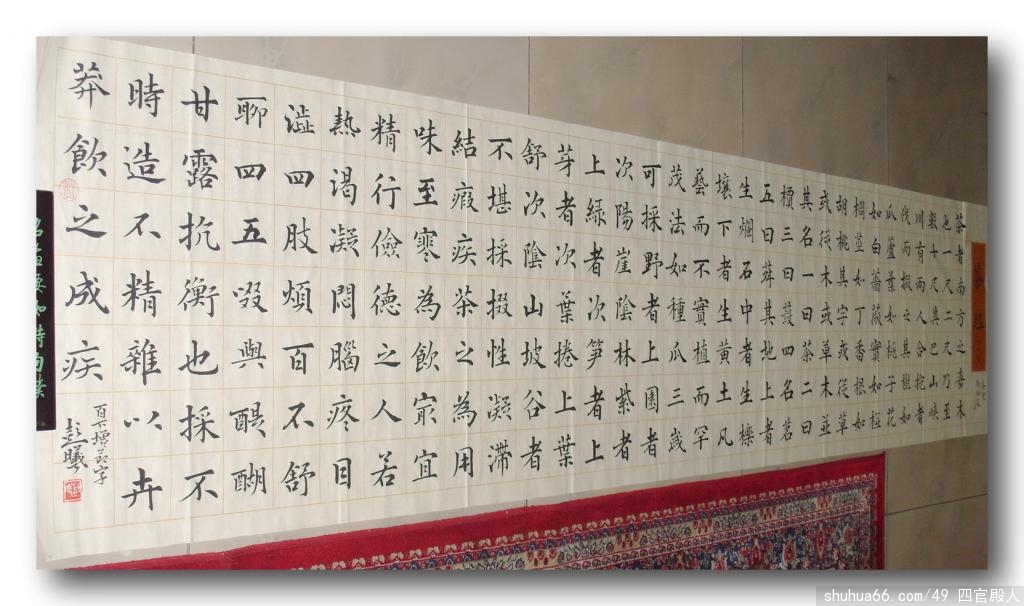 茶經
茶者南方之嘉木
也一尺二尺乃至
數十尺其巴山峽
川有兩人合抱者
伐而掇之其樹如
瓜蘆葉如桃子花
如白薔薇實如栟
櫚莖如丁香根如
胡桃其字或從草
或從木或草木並
其名一曰茶二曰
檟三曰蔎四名茗
五曰荈其地上者
生爛石中者生櫟
壤下者生黃土凡
藝而不實植而罕
茂法如種瓜三歲
可採野者上園者
次陽崖陰林紫者
上綠者次笋者上
芽者次葉捲上葉
舒次陰山坡谷者
不堪採掇性凝滯
結瘕疾茶之為用
味至寒為飲冣宜
精行儉德之人若
熱渴凝悶腦疼目
澁四肢煩百不舒
聊四五啜與醍醐
甘露抗衡也採不
時造不精雜以卉
莽飲之成疾
彭曦
shuhua66.com/49 四官殿人